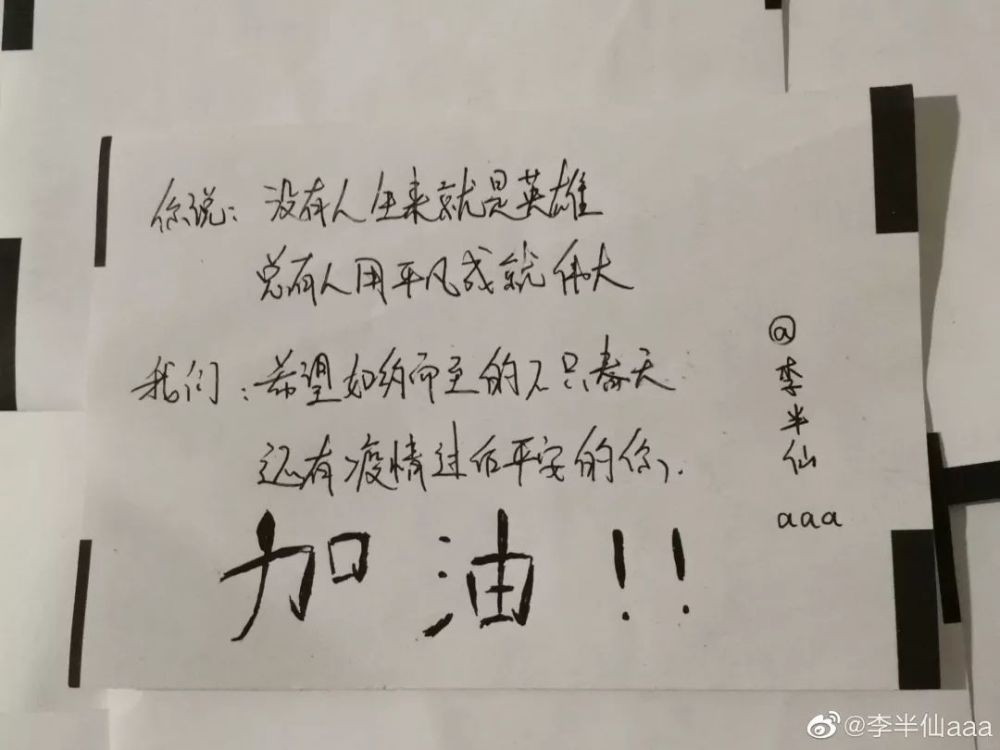 你说：没有人生来就是英雄
总有人用平凡成就伟大
我们：希望如约而至的不只春天
还有疫情过后平安的你.
加油!!
@李半仙aaa
@李半仙aaa